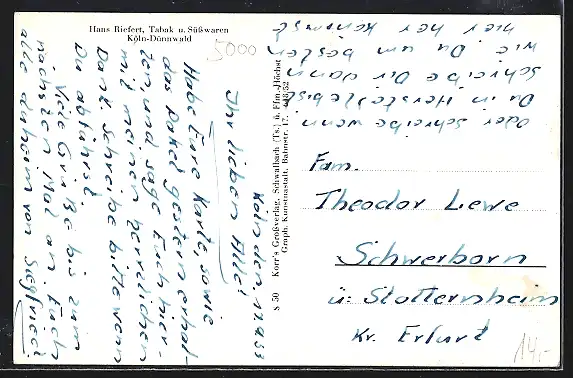 Hans Riefert, Tabak u. Süßwaren
Köln-Dünnwald
5000
Köln, den 17.9.53
Ihr lieben Alle!
Habe Eure Karte, sowie
das Paket gestern erhal-
ten und sage Euch hier-
mit meinen herzlichen
Dank. Schreibe bitte wenn
Du abfährst.
Viele Grüße bis zum
nächsten Mal an Euch
alle daheim von Siegfried
oder schreibe wenn
Du in Hersfeld bist
schreibe Dir dann
wie Du am besten
hier her kommst
S 50 Korr's Großverlag, Schwalbach (Ts.) ü. Ffm.-Höchst
Graph. Kunstanstalt, Bahnstr. 17. 448/52
Fam.
Theodor Lewe
Schwerborn
ü. Stotternheim
Kr. Erfurt
14,-